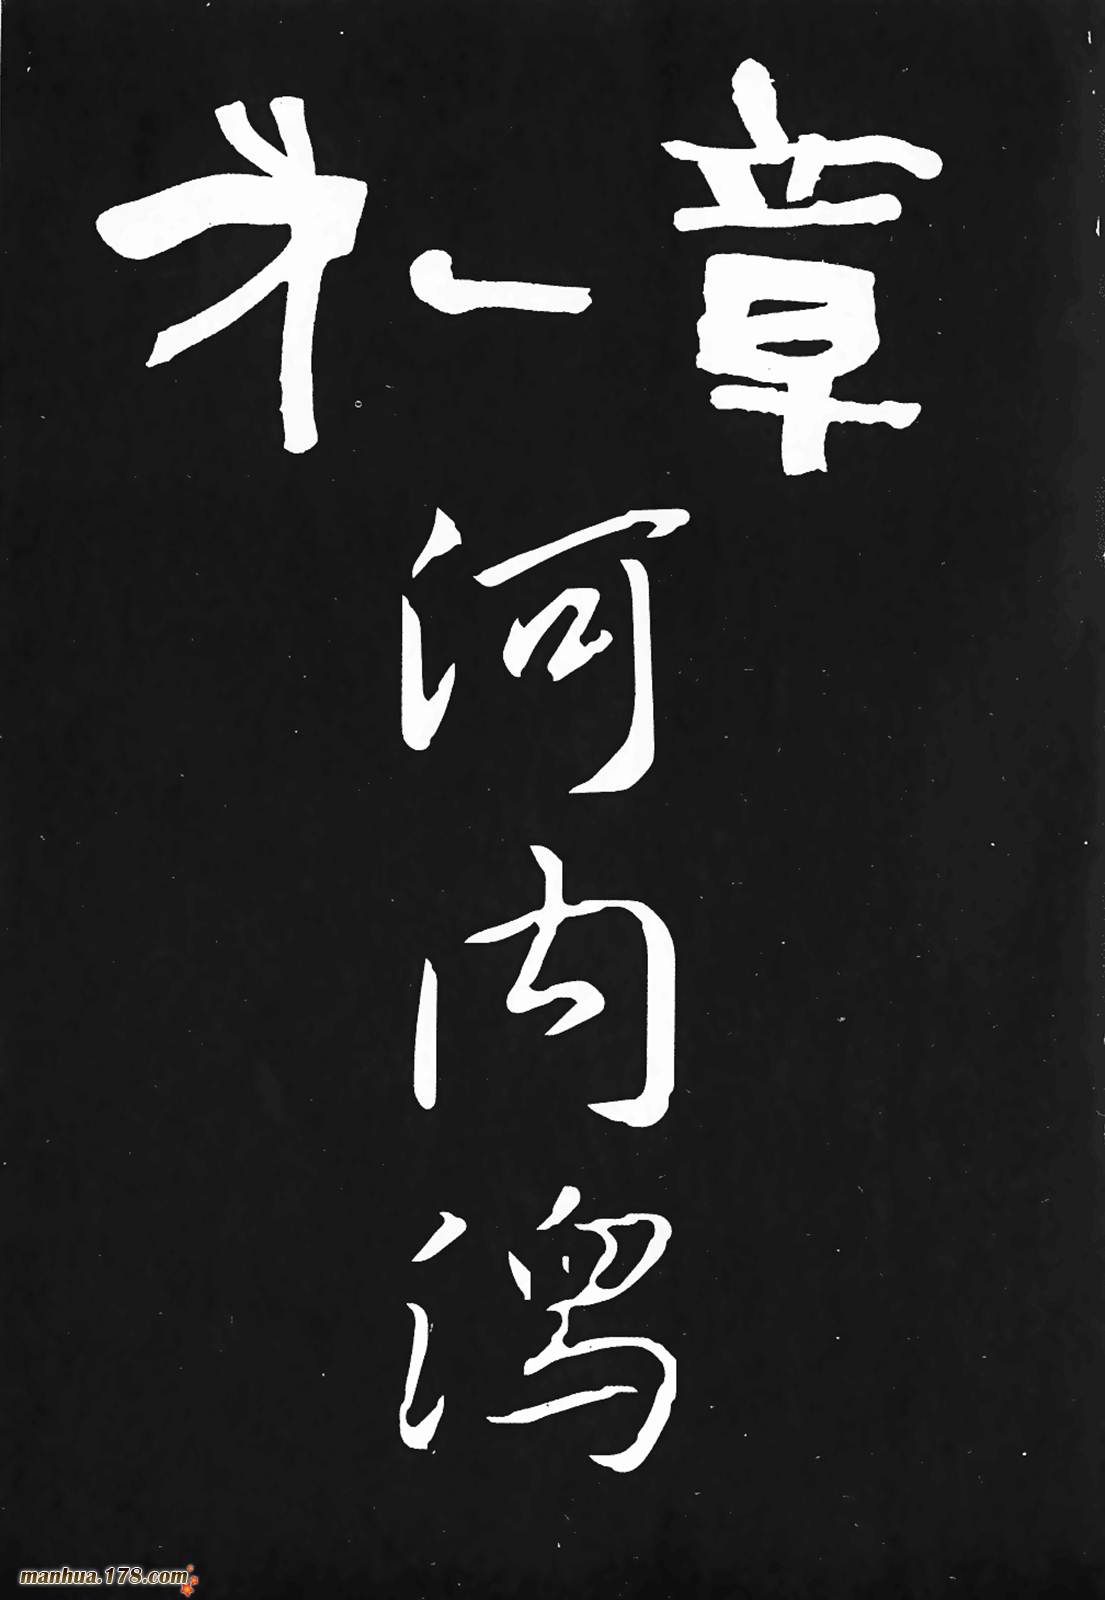 第一章
河内潟
manhua.178.com